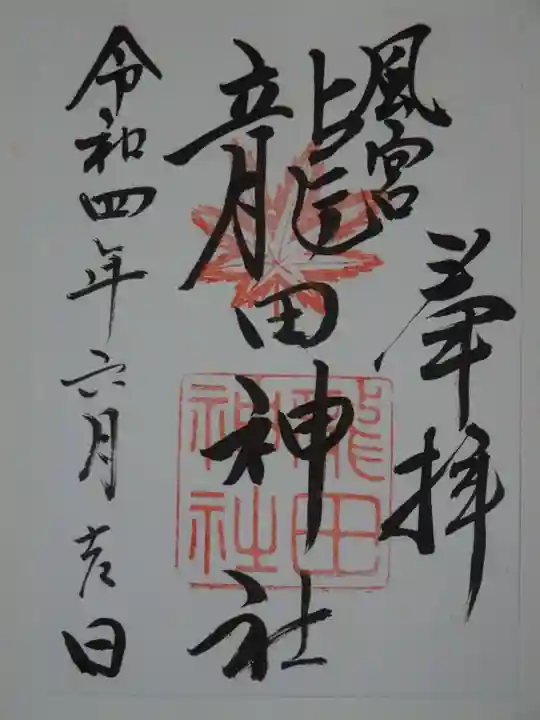 奉拝
風宮
龍田神社
龍田
神社
令和四年六月吉日